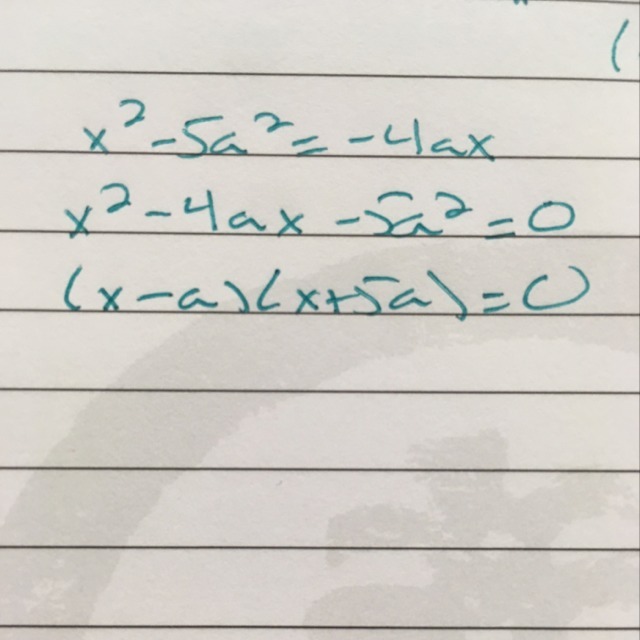 x² - 5a² = -4ax
x² - 4ax - 5a² = 0
(x - a)(x + 5a) = 0